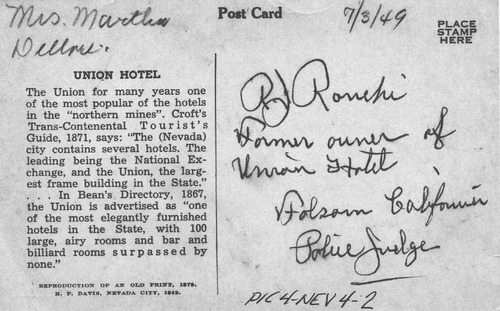 Mrs. Martha
Post Card
7/3/49
PLACE
STAMP
HERE
UNION HOTEL
The Union for many years one
of the most popular of the hotels
in the "northern mines". Croft's
Trans-Contenental Tourist's
Guide, 1871, says: "The (Nevada)
city contains several hotels. The
leading being the National Ex-
change, and the Union, the larg-
est frame building in the State."
. . . In Bean's Directory, 1867,
the Union is advertised as "one
of the most elegantly furnished
hotels in the State, with 100
large, airy rooms and bar and
billiard rooms surpassed by
none."
REPRODUCTION OF AN OLD PRINT, 1879.
H. P. DAVIS, NEVADA CITY, 1949.
Ronchi
Former owner of
Union Hotel
Folsom California
Police Judge
PIC4-NEV4-2